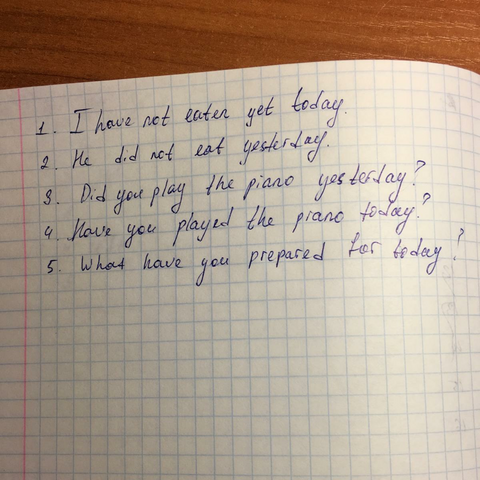 1. I have not eaten yet today.
2. He did not eat yesterday.
3. Did you play the piano yesterday?
4. Have you played the piano today?
5. What have you prepared for today?